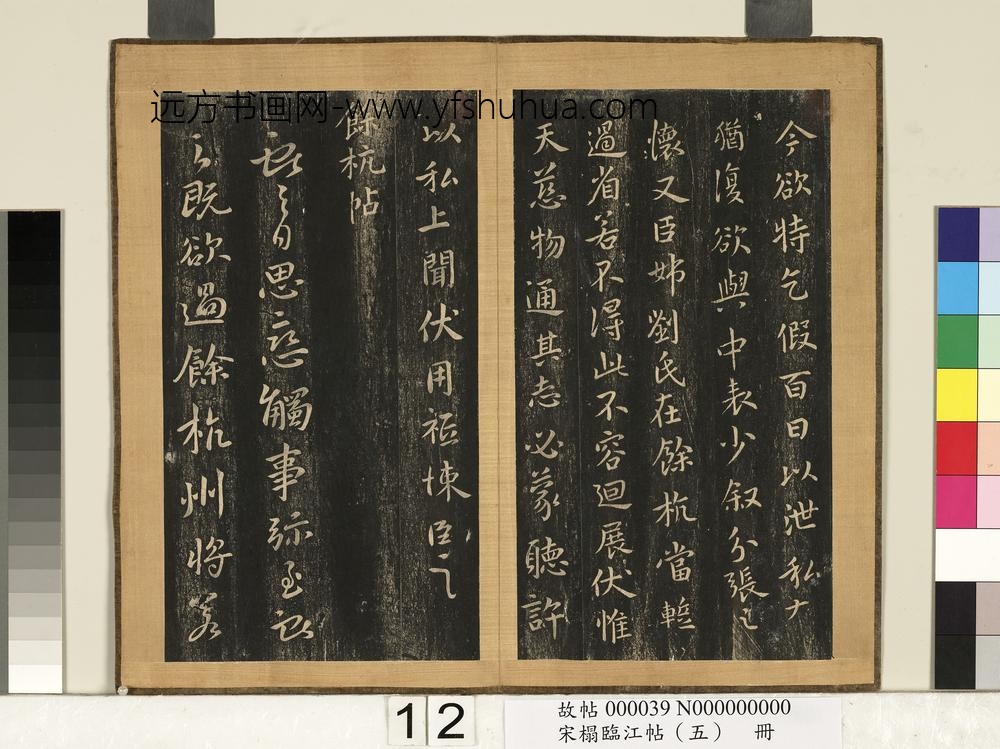 远方书画网-www.yfshuhua.com
今欲特乞假百日以泄私
猶復欲與中表少叙分張之
懷又臣姊劉氏在餘杭當暫
過省若不得此不容迴展伏惟
天慈物通其志必蒙聽許
以私上聞伏用祗悚臣
餘杭帖
日思戀觸事弥至
既欲過餘杭州將若
12
故帖 000039 N000000000
宋榻臨江帖（五） 冊